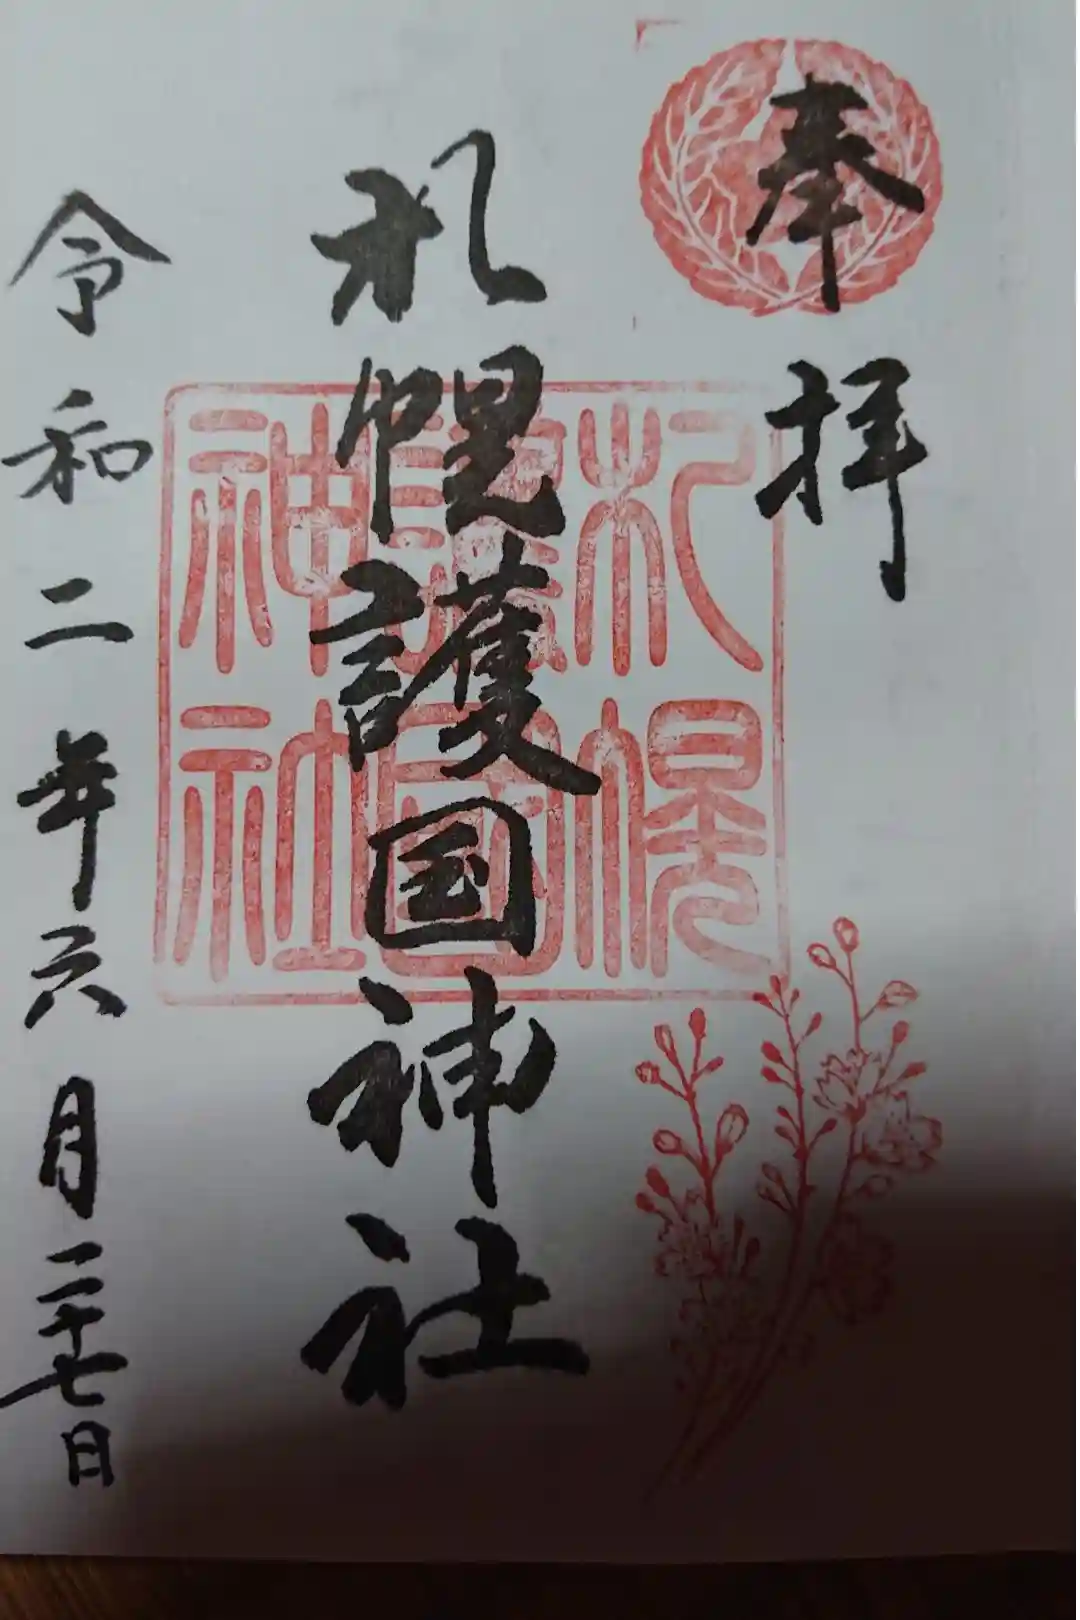 奉拝
札幌護国神社
札幌護国神社
令和二年六月二十七日